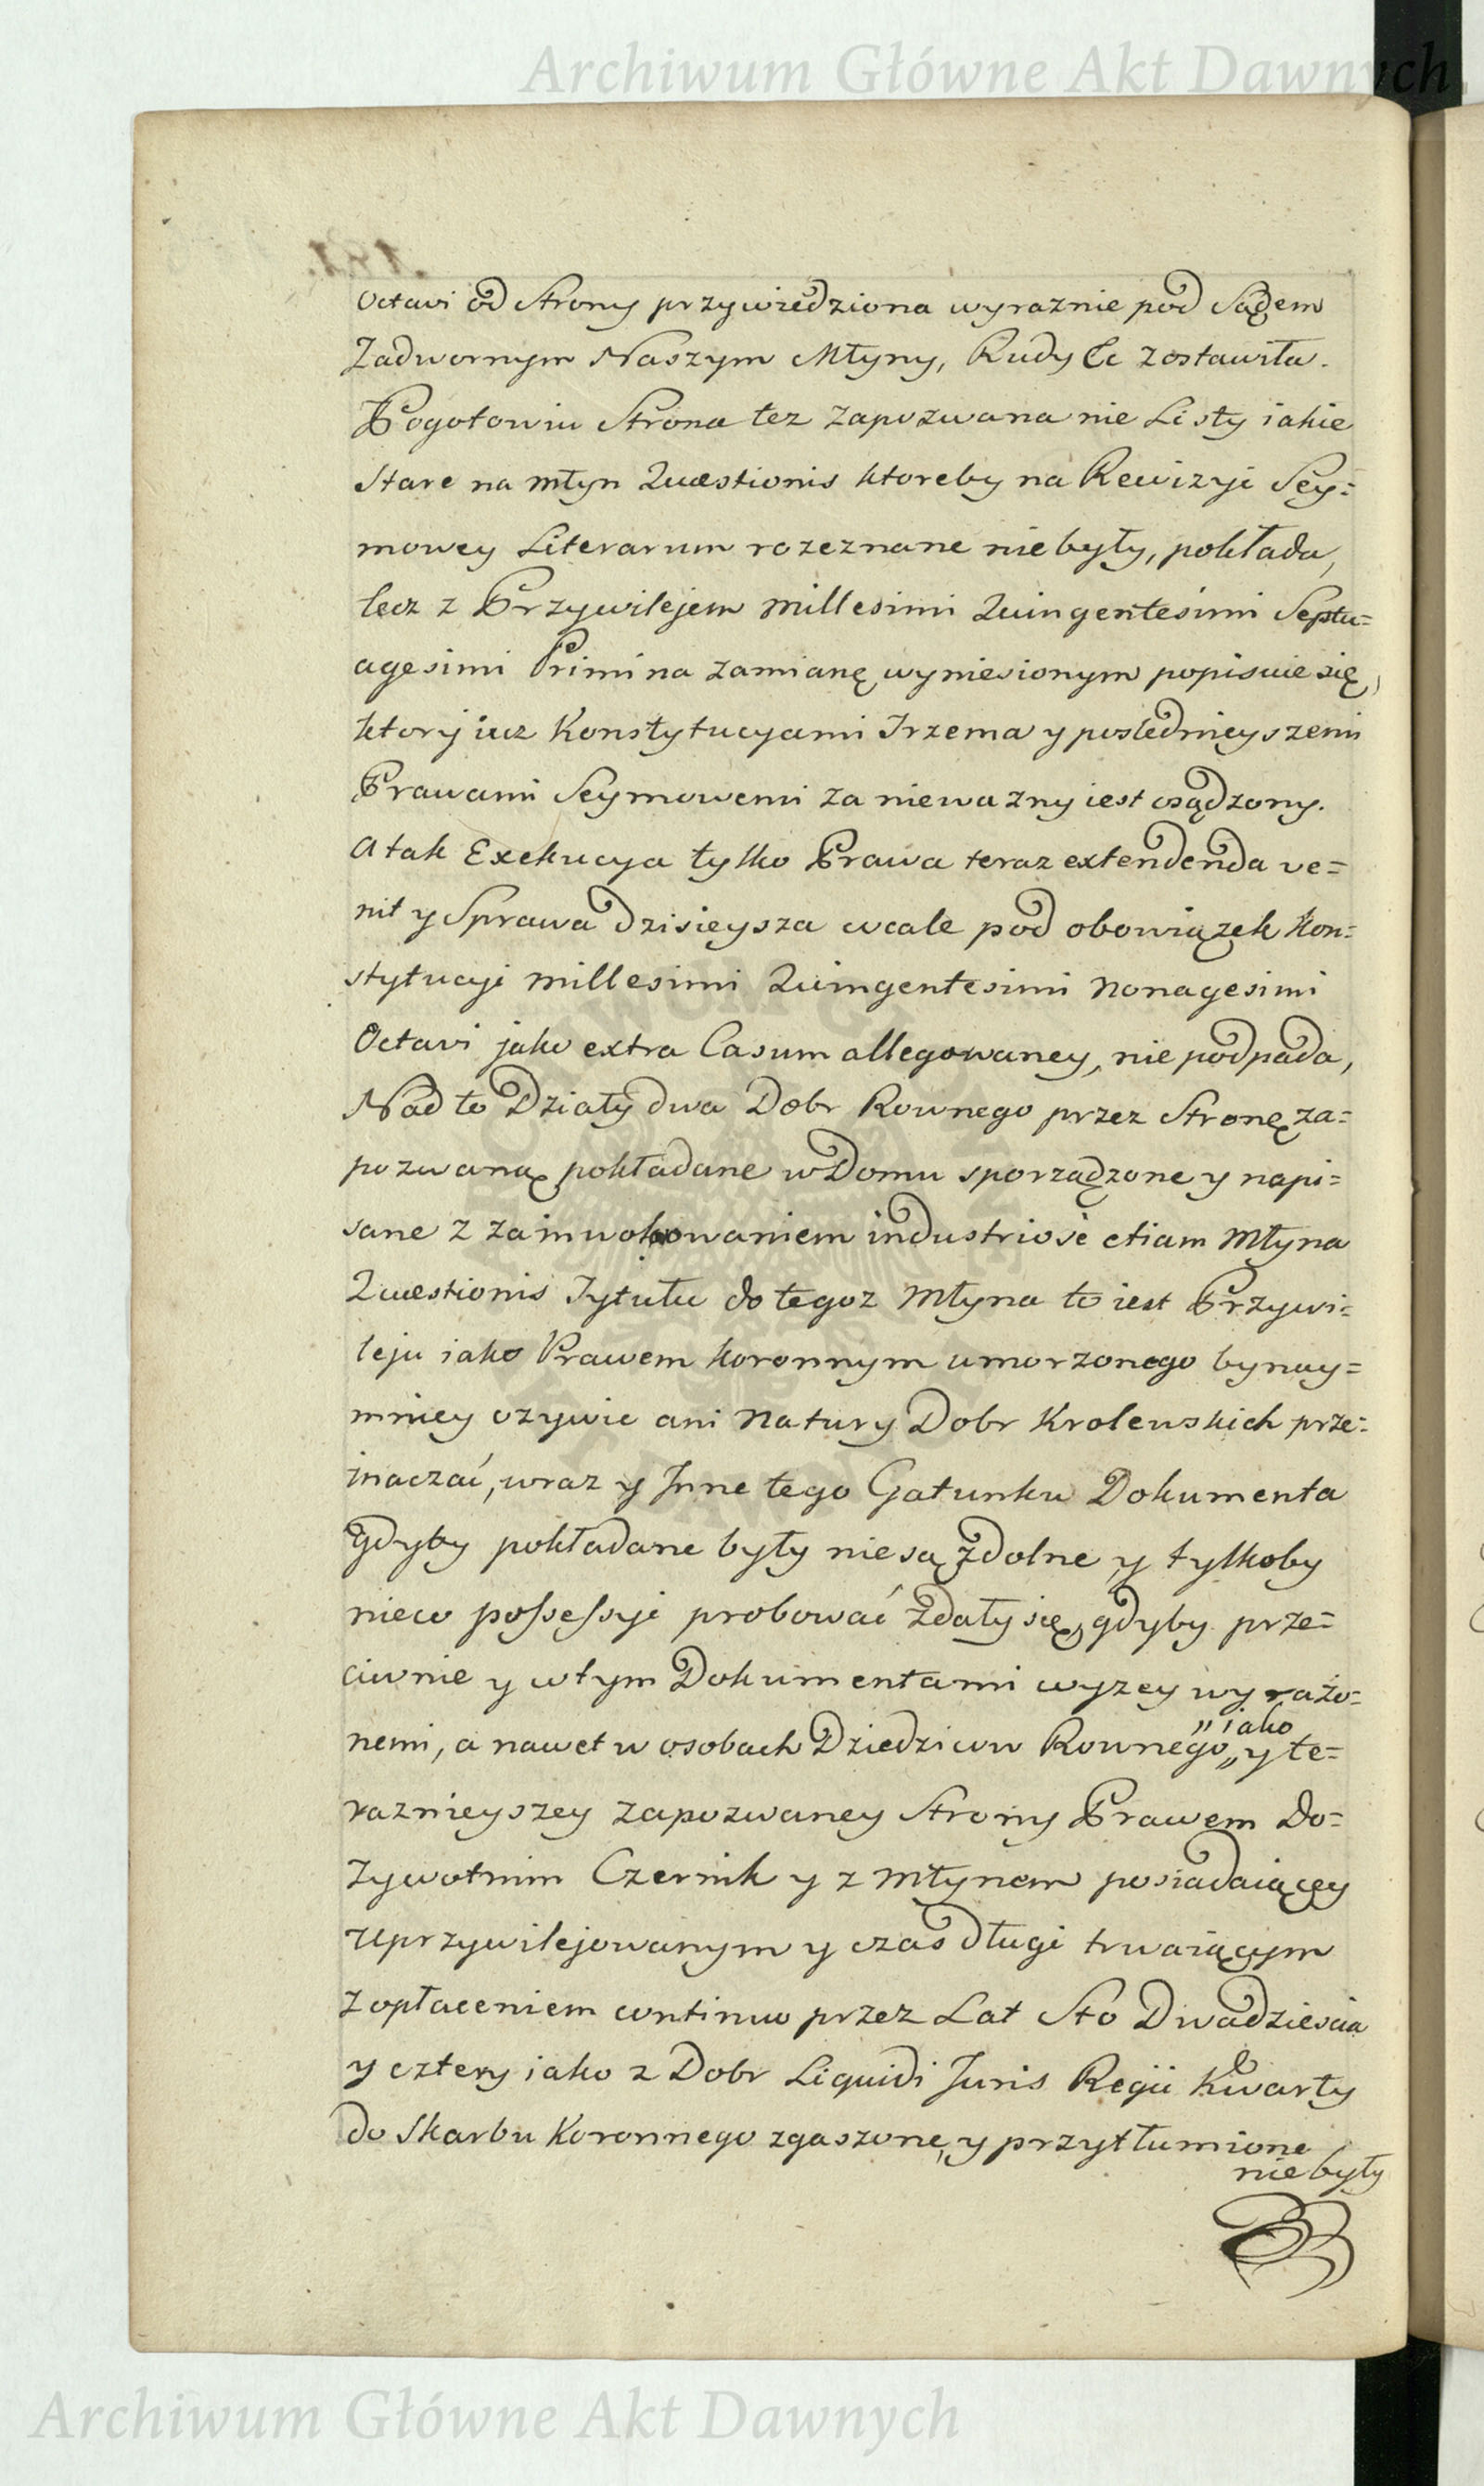 Archiwum Główne Akt Dawnych
Octavi od Strony przywiedziona wyraznie pod Sądem
Zadwornym Naszym Młyny, Rudy &c zostawiła.
Pogotowiu Strona tez zapozwana nie Listy iakie
Stare na młyn Quæstionis ktoreby na Rewizyi Sey=
mowey Literarum rozeznane nie były, pokłada,
lecz z Przywilejem millesimi Quingentesimi Septu=
agesimi Primi na zamianę wyniesionym popisuie się,
ktory iuz Konstytucyami Trzema y poslednieyszemi
Prawami Seymowemi za niewazny iest osądzony.
A tak Exekucya tylko Prawa teraz extendenda ve=
nit y Sprawa dzisieysza wcale pod obowiązek Kon=
stytucyi millesimi Quingentesimi Nonagesimi
Octavi jako extra Casum allegowaney, nie podpada,
Nad to Działy dwa Dobr Rownego przez Stronę za=
pozwaną pokładane w Domu sporządzone y napi=
sane z zainwokowaniem industriose etiam Młyna
Quæstionis Tytułu do tegoz Młyna to iest Przywi=
leju iako Prawem koronnym umorzonego bynay=
mniey ozywic ani Natury Dobr Krolewskich prze=
inaczać, wraz y Inne tego Gatunku Dokumenta
gdyby pokładane były nie są zdolne y tylkoby
nieco possessyi probować zdały się, gdyby prze=
ciwnie y w tym Dokumentami wyzey wyrażo=
nemi, a nawet w osobach Dziedzicow Rownego „ y te=
„ iako
raznieyszey zapozwaney Strony Prawem Do=
zywotnim Czernik y z młynem posiadaiącey
uprzywilejowanym y czas długi trwaiącym
z opłaceniem continuo przez Lat Sto Dwadziescia
y cztery iako z Dobr Liquidi Juris Regii Kwarty
do Skarbu Koronnego zgaszone, y przytłumione
nie były
Archiwum Główne Akt Dawnych